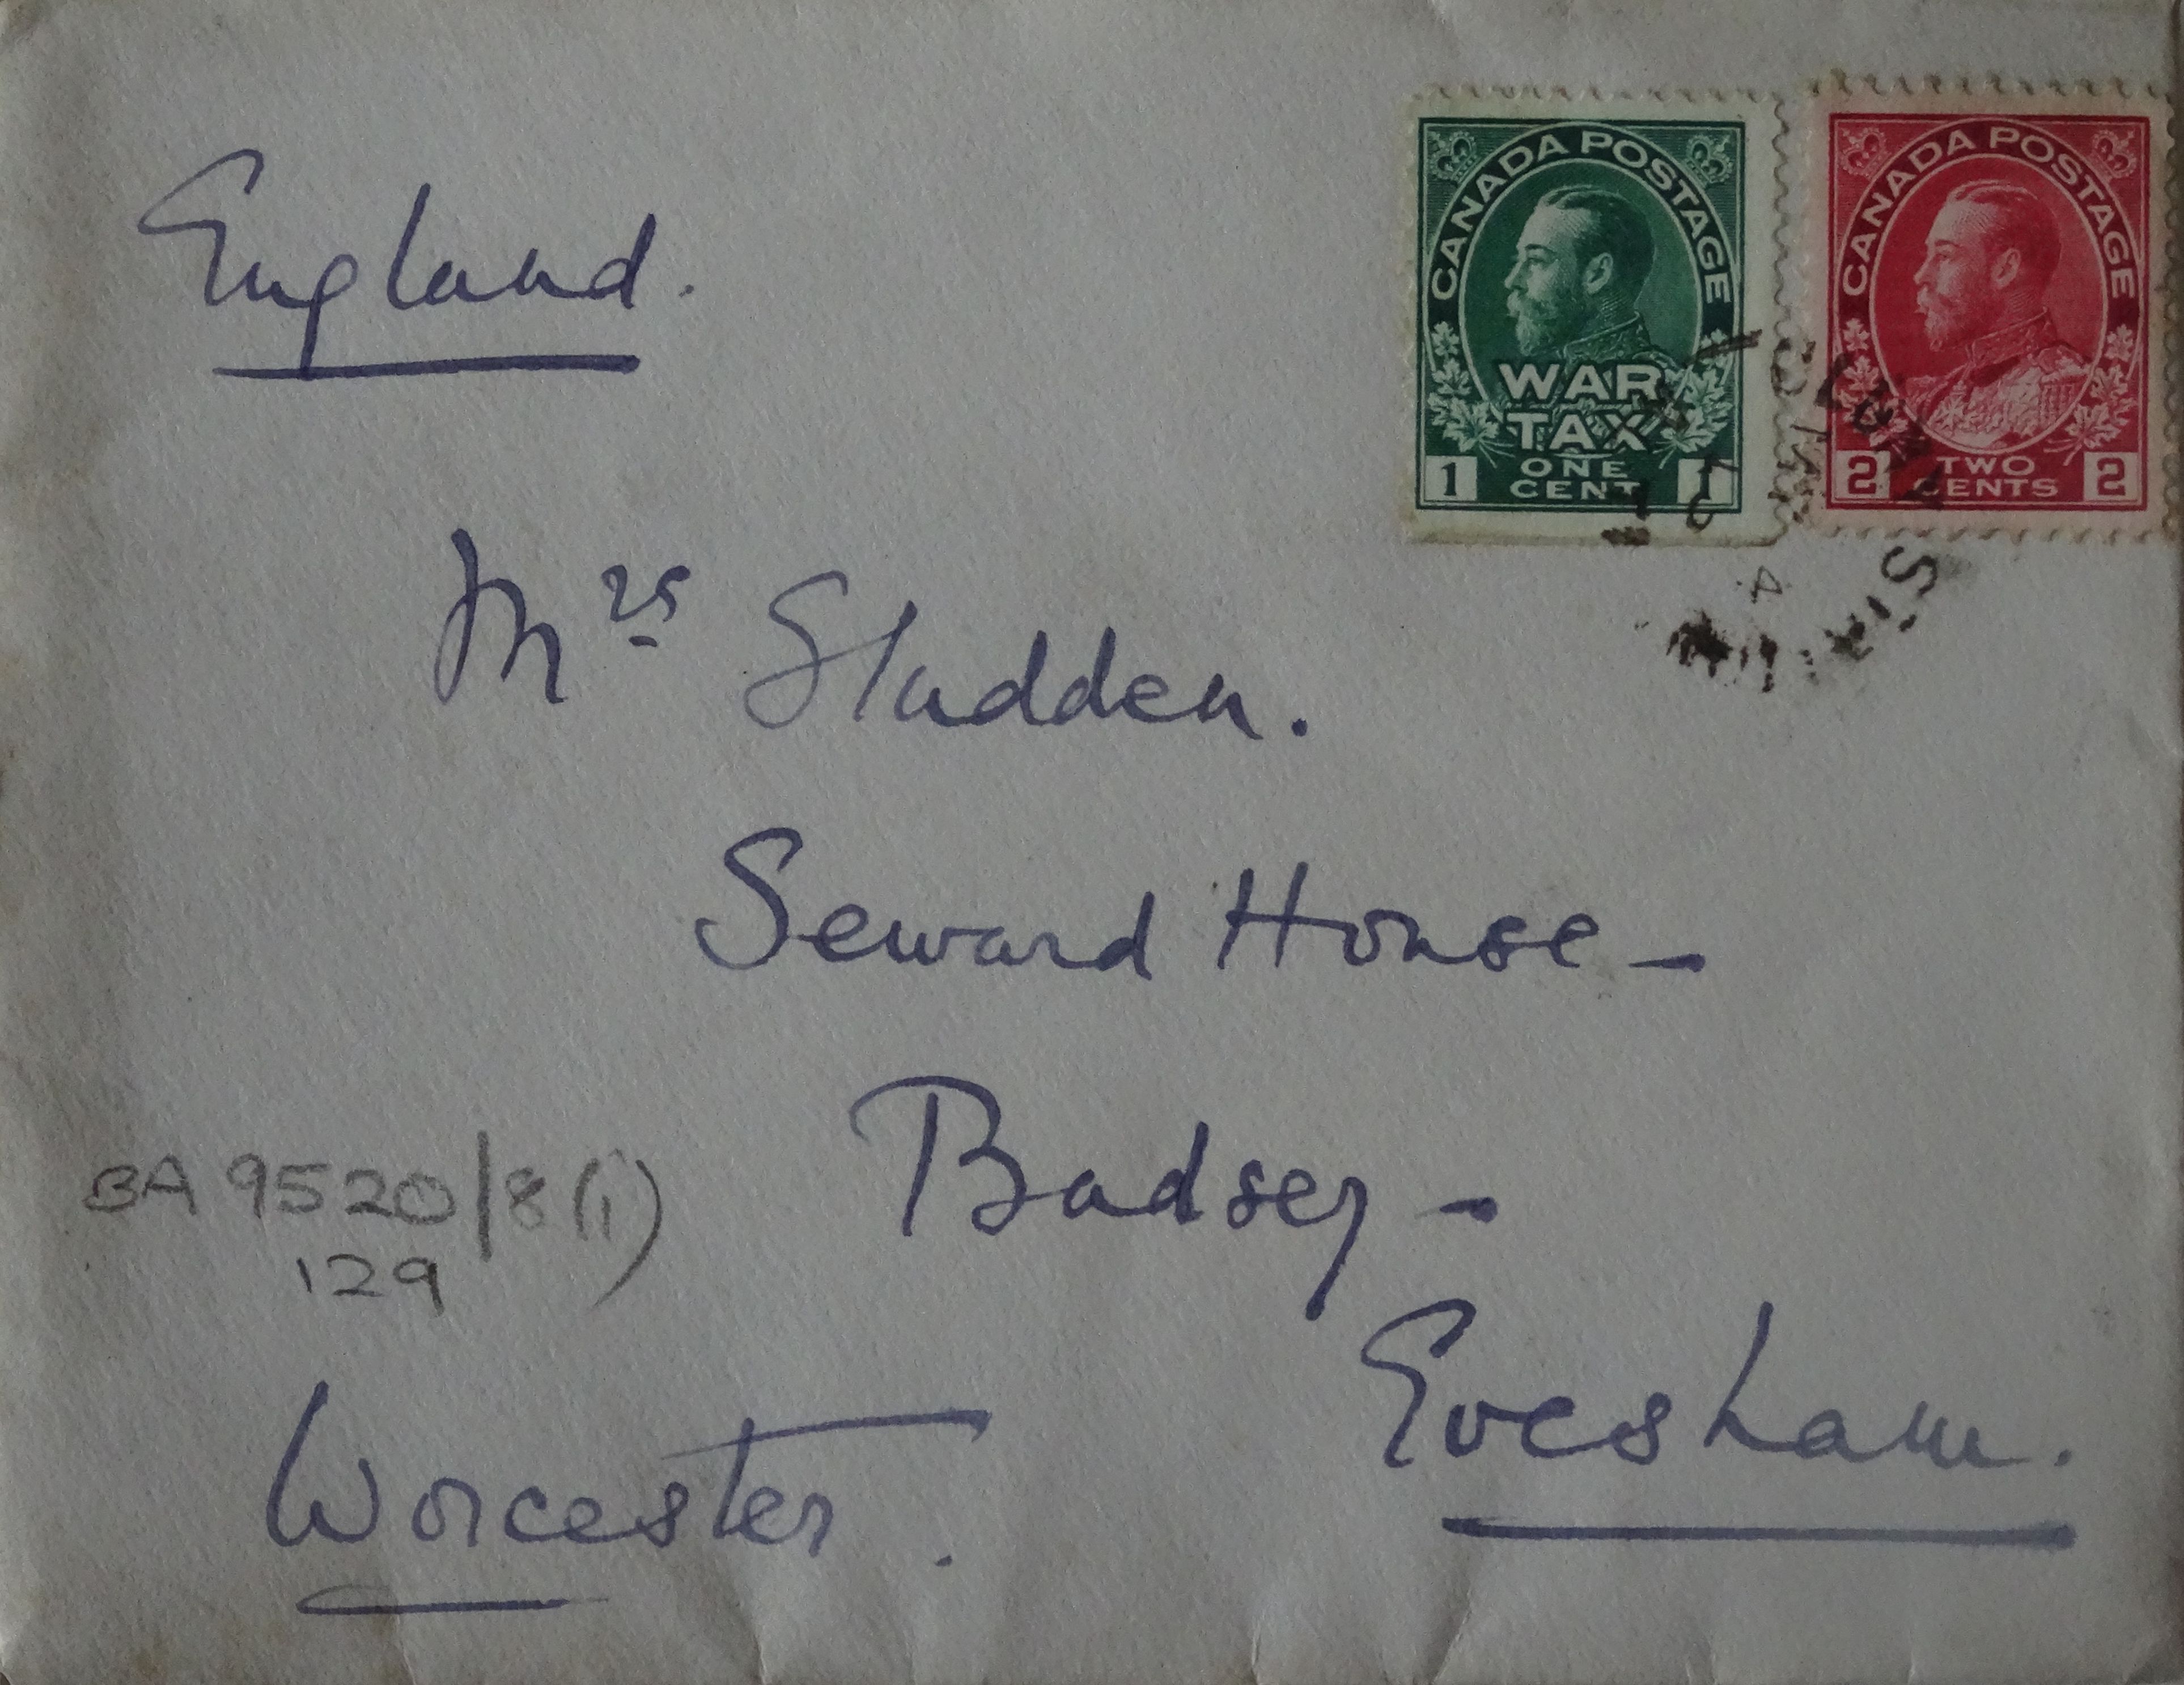 England.
CANADA POSTAGE
WAR
TAX
1 ONE 1
CENT
CANADA POSTAGE
2 TWO 2
CENTS
Mrs Sladden.
Seward House -
Badsey -
Evesham.
BA 9520/8(i)
129
Worcester.